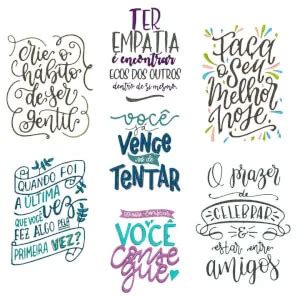 Crie o
hábito
de ser
gentil
TER
EMPATIA
é encontrar
ECOS DOS OUTROS
dentro de si mesmo.
Faça
o seu
Melhor
hoje.
VOCÊ
já
VENCE
só de
TENTAR
QUANDO FOI
A ÚLTIMA
VEZ
QUE VOCÊ
FEZ ALGO PELA
PRIMEIRA VEZ?
VOCÊ
conse
gue
O prazer
de
CELEBRAR
&
estar entre
amigos